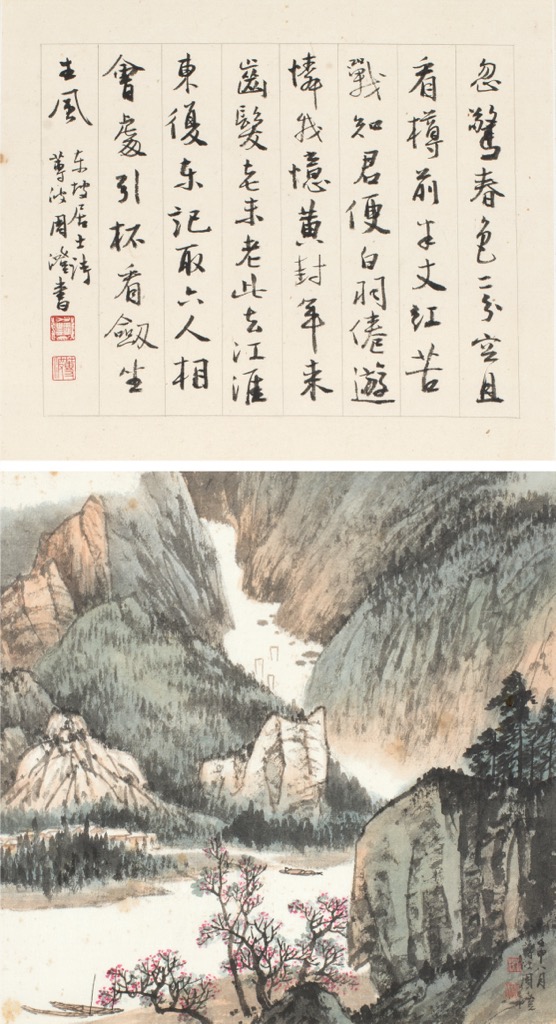 忽驚春色二分空且
看樽前半丈紅苦
戰知君便白羽倦遊
憐我憶黃封年來
齒髮老未老此去江淮
東復東記取六人相
會處引杯看劔坐
生風
东坡居士詩
蓴波周澄書